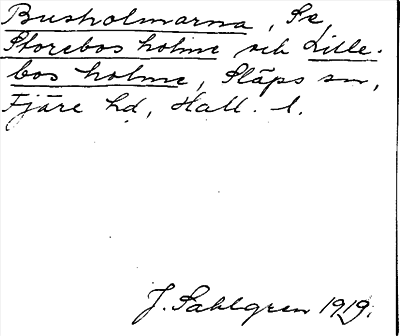 Busholmarna, Se
Storebos holme och Lille-
bos holme, Släps sn,
Fjäre hd, Hall. l.
J. Sahlgren 1919.